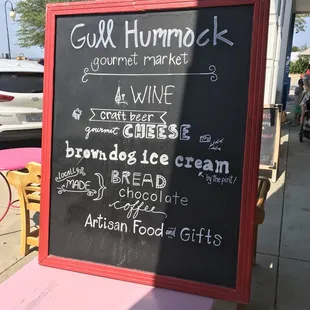 Gull Hummock
gourmet market
WINE
craft beer
gourmet CHEESE
brown dog ice cream
by the pint!
locally MADE
BREAD
chocolate
coffee
Artisan Food and Gifts